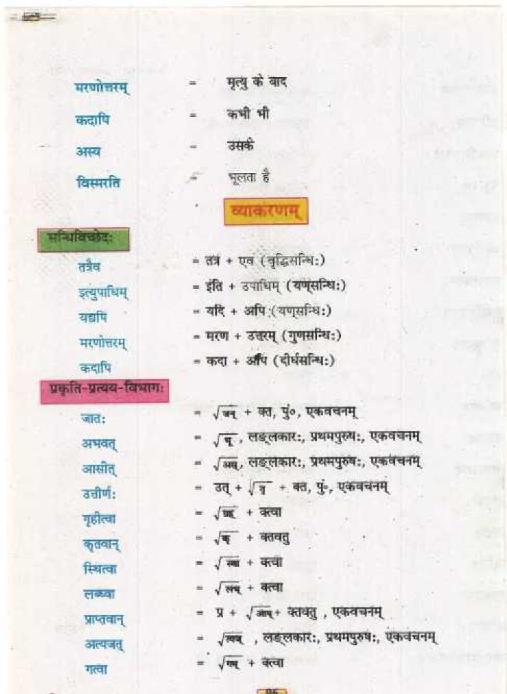 मरणोत्तरम् = मृत्यु के बाद
कदापि = कभी भी
अस्य = उसके
विस्मरति = भूलता है
व्याकरणम्
सन्धिविच्छेदः
तत्रैव = तत्र + एव (वृद्धिसन्धिः)
इत्युपाधिम् = इति + उपाधिम् (यण्सन्धिः)
यद्यपि = यदि + अपि (यण्सन्धिः)
मरणोत्तरम् = मरण + उत्तरम् (गुणसन्धिः)
कदापि = कदा + अपि (दीर्घसन्धिः)
प्रकृति-प्रत्यय-विभागः
जातः = √जन् + क्त, पुं०, एकवचनम्
अभवत् = √भू, लङ्लकारः, प्रथमपुरुषः, एकवचनम्
आसीत् = √अस्, लङ्लकारः, प्रथमपुरुषः, एकवचनम्
उत्तीर्णः = उत् + √तृ + क्त, पुं०, एकवचनम्
गृहीत्वा = √ग्रह् + क्त्वा
कृतवान् = √कृ + क्तवतु
स्थित्वा = √स्था + क्त्वा
लब्ध्वा = √लभ् + क्त्वा
प्राप्तवान् = प्र + √आप् + क्तवतु , एकवचनम्
अत्यजत् = √त्यज् , लङ्लकारः, प्रथमपुरुषः, एकवचनम्
गत्वा = √गम् + क्त्वा